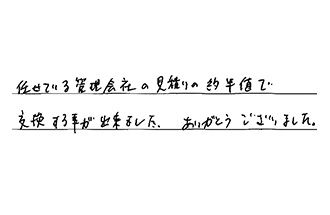 任せている管理会社の見積りの約半値で
交換する事が出来ました、ありがとうございました。